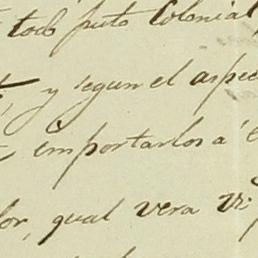 todo puto Colonial
y segun el aspec
importarlos a' e
lor, qual vera